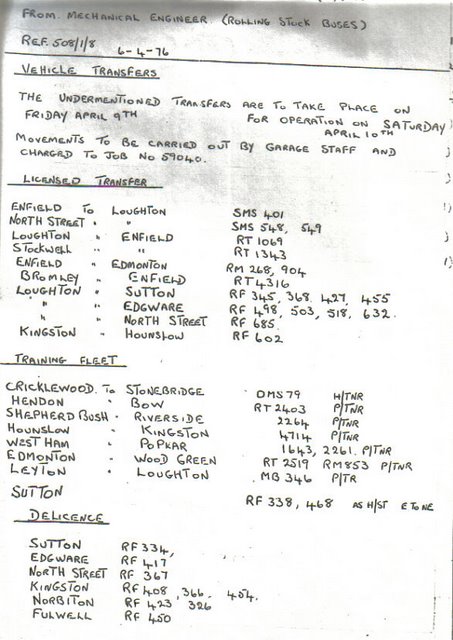 FROM MECHANICAL ENGINEER (ROLLING STOCK BUSES)
REF. 508/1/8 6-4-76
VEHICLE TRANSFERS
THE UNDERMENTIONED TRANSFERS ARE TO TAKE PLACE ON
FRIDAY APRIL 9TH FOR OPERATION ON SATURDAY
APRIL 10TH
MOVEMENTS TO BE CARRIED OUT BY GARAGE STAFF AND
CHARGED TO JOB NO 59040.
LICENSED TRANSFER
ENFIELD TO LOUGHTON SMS 401
NORTH STREET " " SMS 548, 549
LOUGHTON " ENFIELD RT 1069
STOCKWELL " " RT 1343
ENFIELD " EDMONTON RM 268, 904
BROMLEY " ENFIELD RT 4316
LOUGHTON " SUTTON RF 345, 368. 427, 455
" " EDGWARE RF 498, 503, 518, 632.
" " NORTH STREET RF 685.
KINGSTON " HOUNSLOW RF 602
TRAINING FLEET
CRICKLEWOOD TO STONEBRIDGE DMS 79 H/TNR
HENDON " BOW RT 2403 P/TNR
SHEPHERD BUSH " RIVERSIDE 2264 P/TNR
HOUNSLOW " KINGSTON 4714 P/TNR
WEST HAM " POPKAR 1643, 2261. P/TNR
EDMONTON " WOOD GREEN RT 2519 RM853 P/TNR
LEYTON " LOUGHTON MB 346 P/TR
SUTTON RF 338, 468 AS H/ST E TO NE
DELICENCE
SUTTON RF 334,
EDGWARE RF 417
NORTH STREET RF 367
KINGSTON RF 408, 366. 454.
NORBITON RF 423 326
FULWELL RF 450